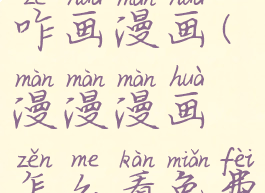 zé huà màn huà
咋画漫画(
màn màn màn huà
漫漫漫画
zěn me kàn miǎn fèi
怎么看免费